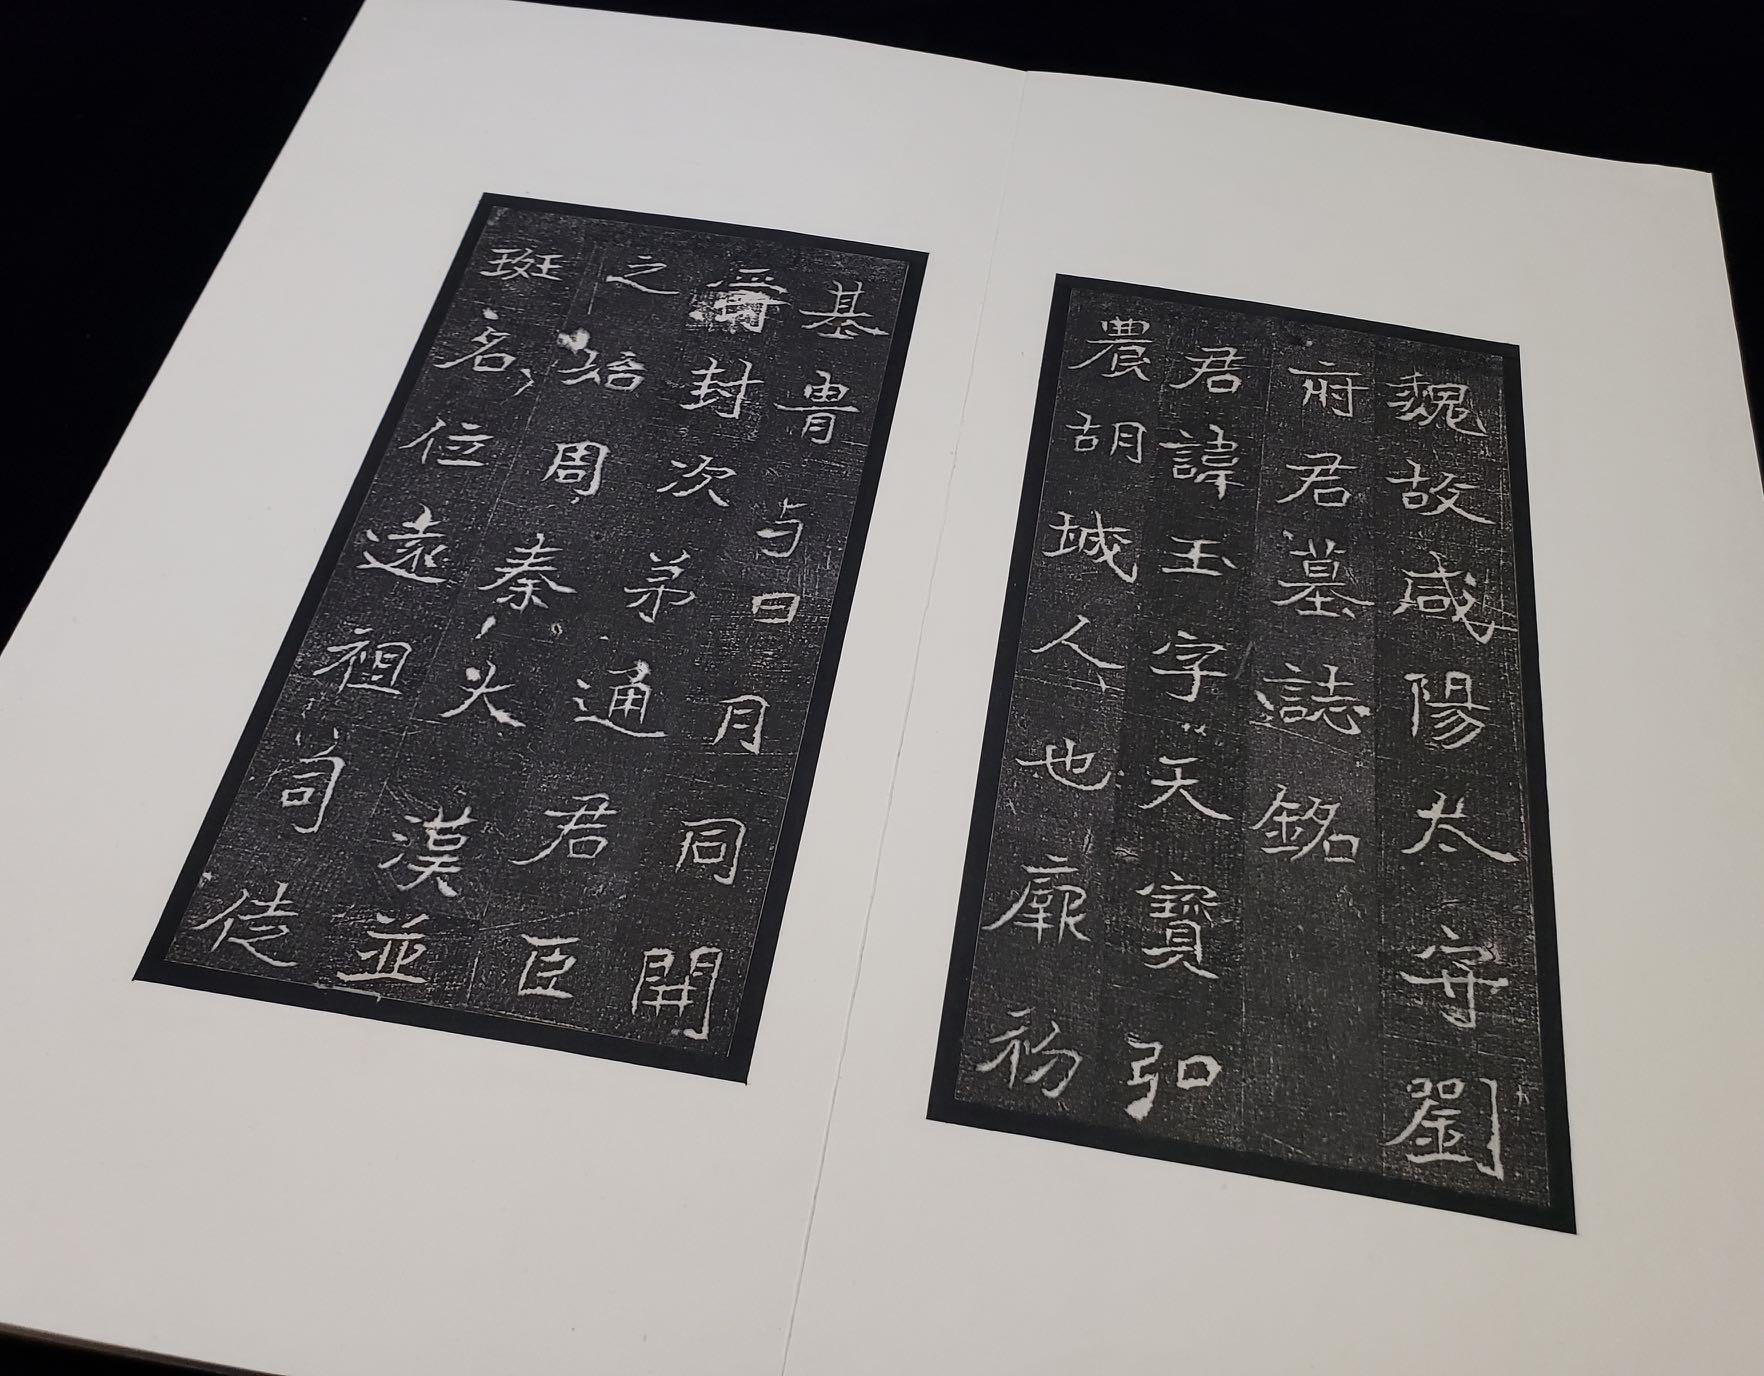 魏故咸陽太守劉
府君墓誌銘
君諱玉字天寶弘
農胡城人也廓初
基冑与日月同開
封次苐通君臣
之始周秦火漢並
班名位遠祖司徒